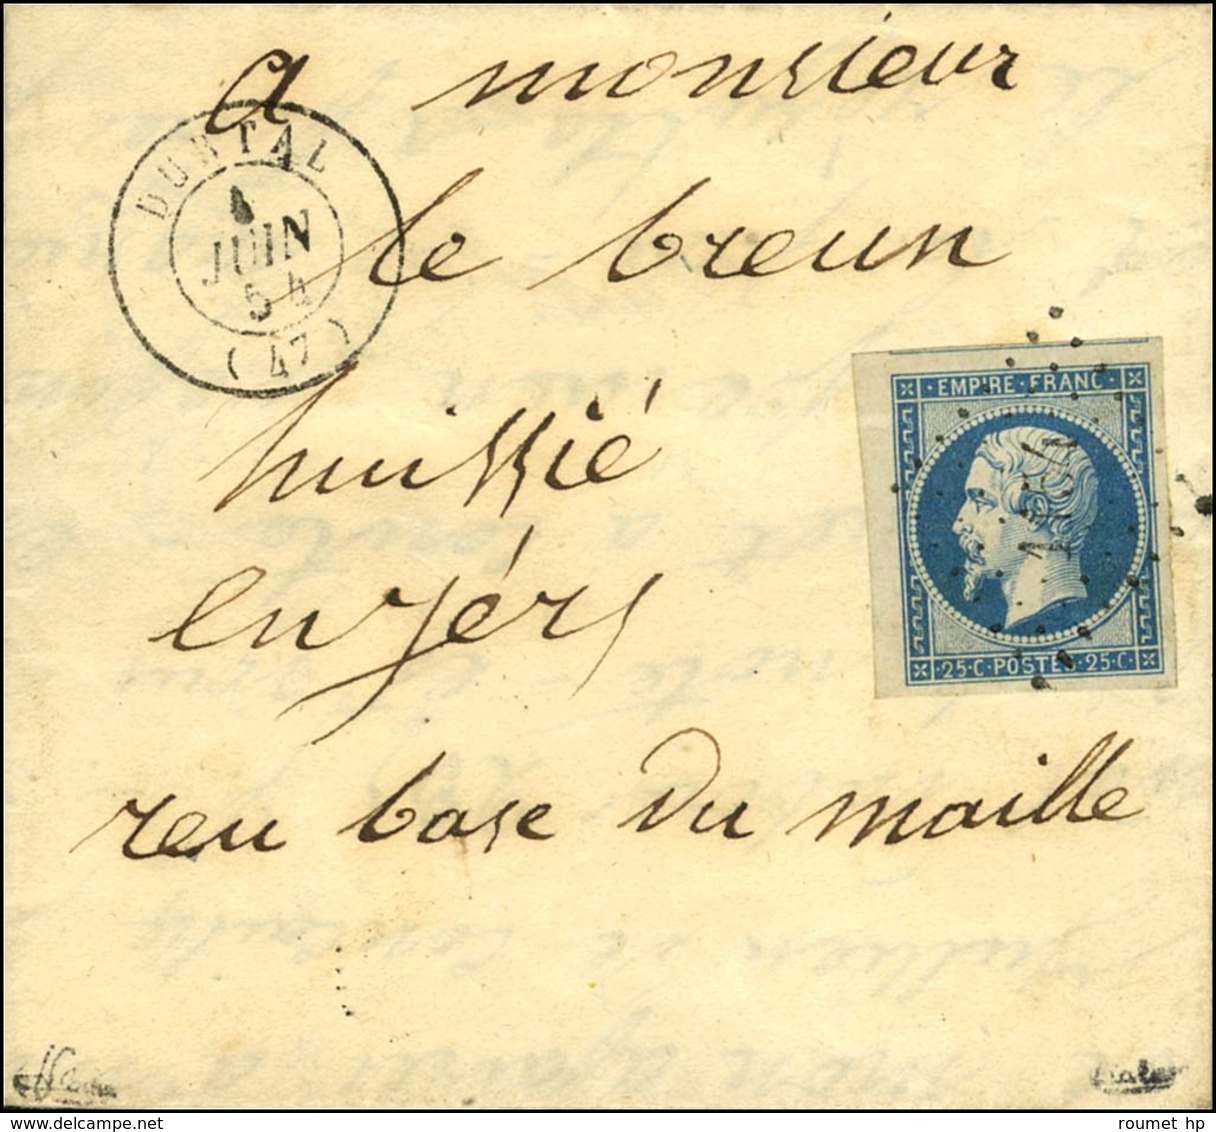 A monsieur
DURTAL
4
JUIN
54
(47)
le breun
EMPIRE·FRANC·
huissié
enjérs
25·C·POSTES·25·C·
reu base du maille
roumet hp